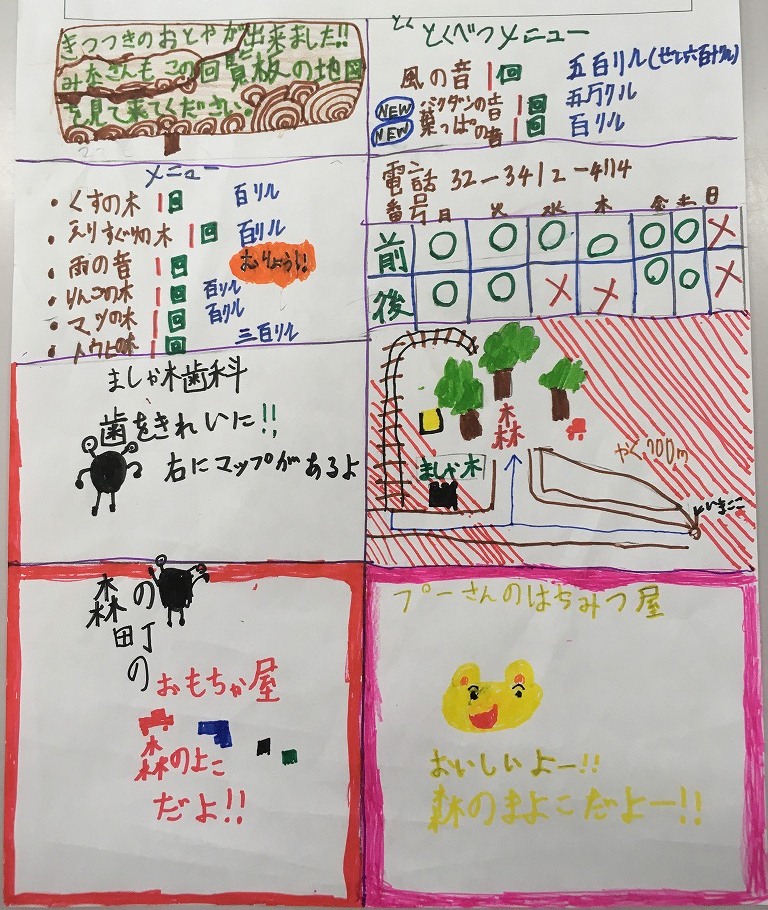 きつつきのおとやが出来ました!!
みなさんもこの回覧板への地図
を見て来てください!
とくべつメニュー
風の音 1回 五百リル(ぜい六百十リル)
NEW バクダンの音 1回 五万リル
NEW 葉っぱの音 1回 百リル
メニュー
・くすの木 1回 百リル
・えりすぐりの木 1回 百リル
・雨の音 1回 むりょう!!
・りんごの木 1回 百リル
・マツの木 1回 百リル
・トウヒの木 1回 三百リル
電話 32-3412-4114
番号 月 火 水 木 金 土 日
前 ○ ○ ○ ○ ○ ○ ×
後 ○ ○ × × ○ ○ ×
ましか木歯科
歯をきれいに!!
右にマップがあるよ
森
ましか木
やく700m
いまここ
森の
町
の
おもちゃ屋
森のよこ
だよ!!
プーさんのはちみつ屋
おいしいよー!!
森のまよこだよー!!